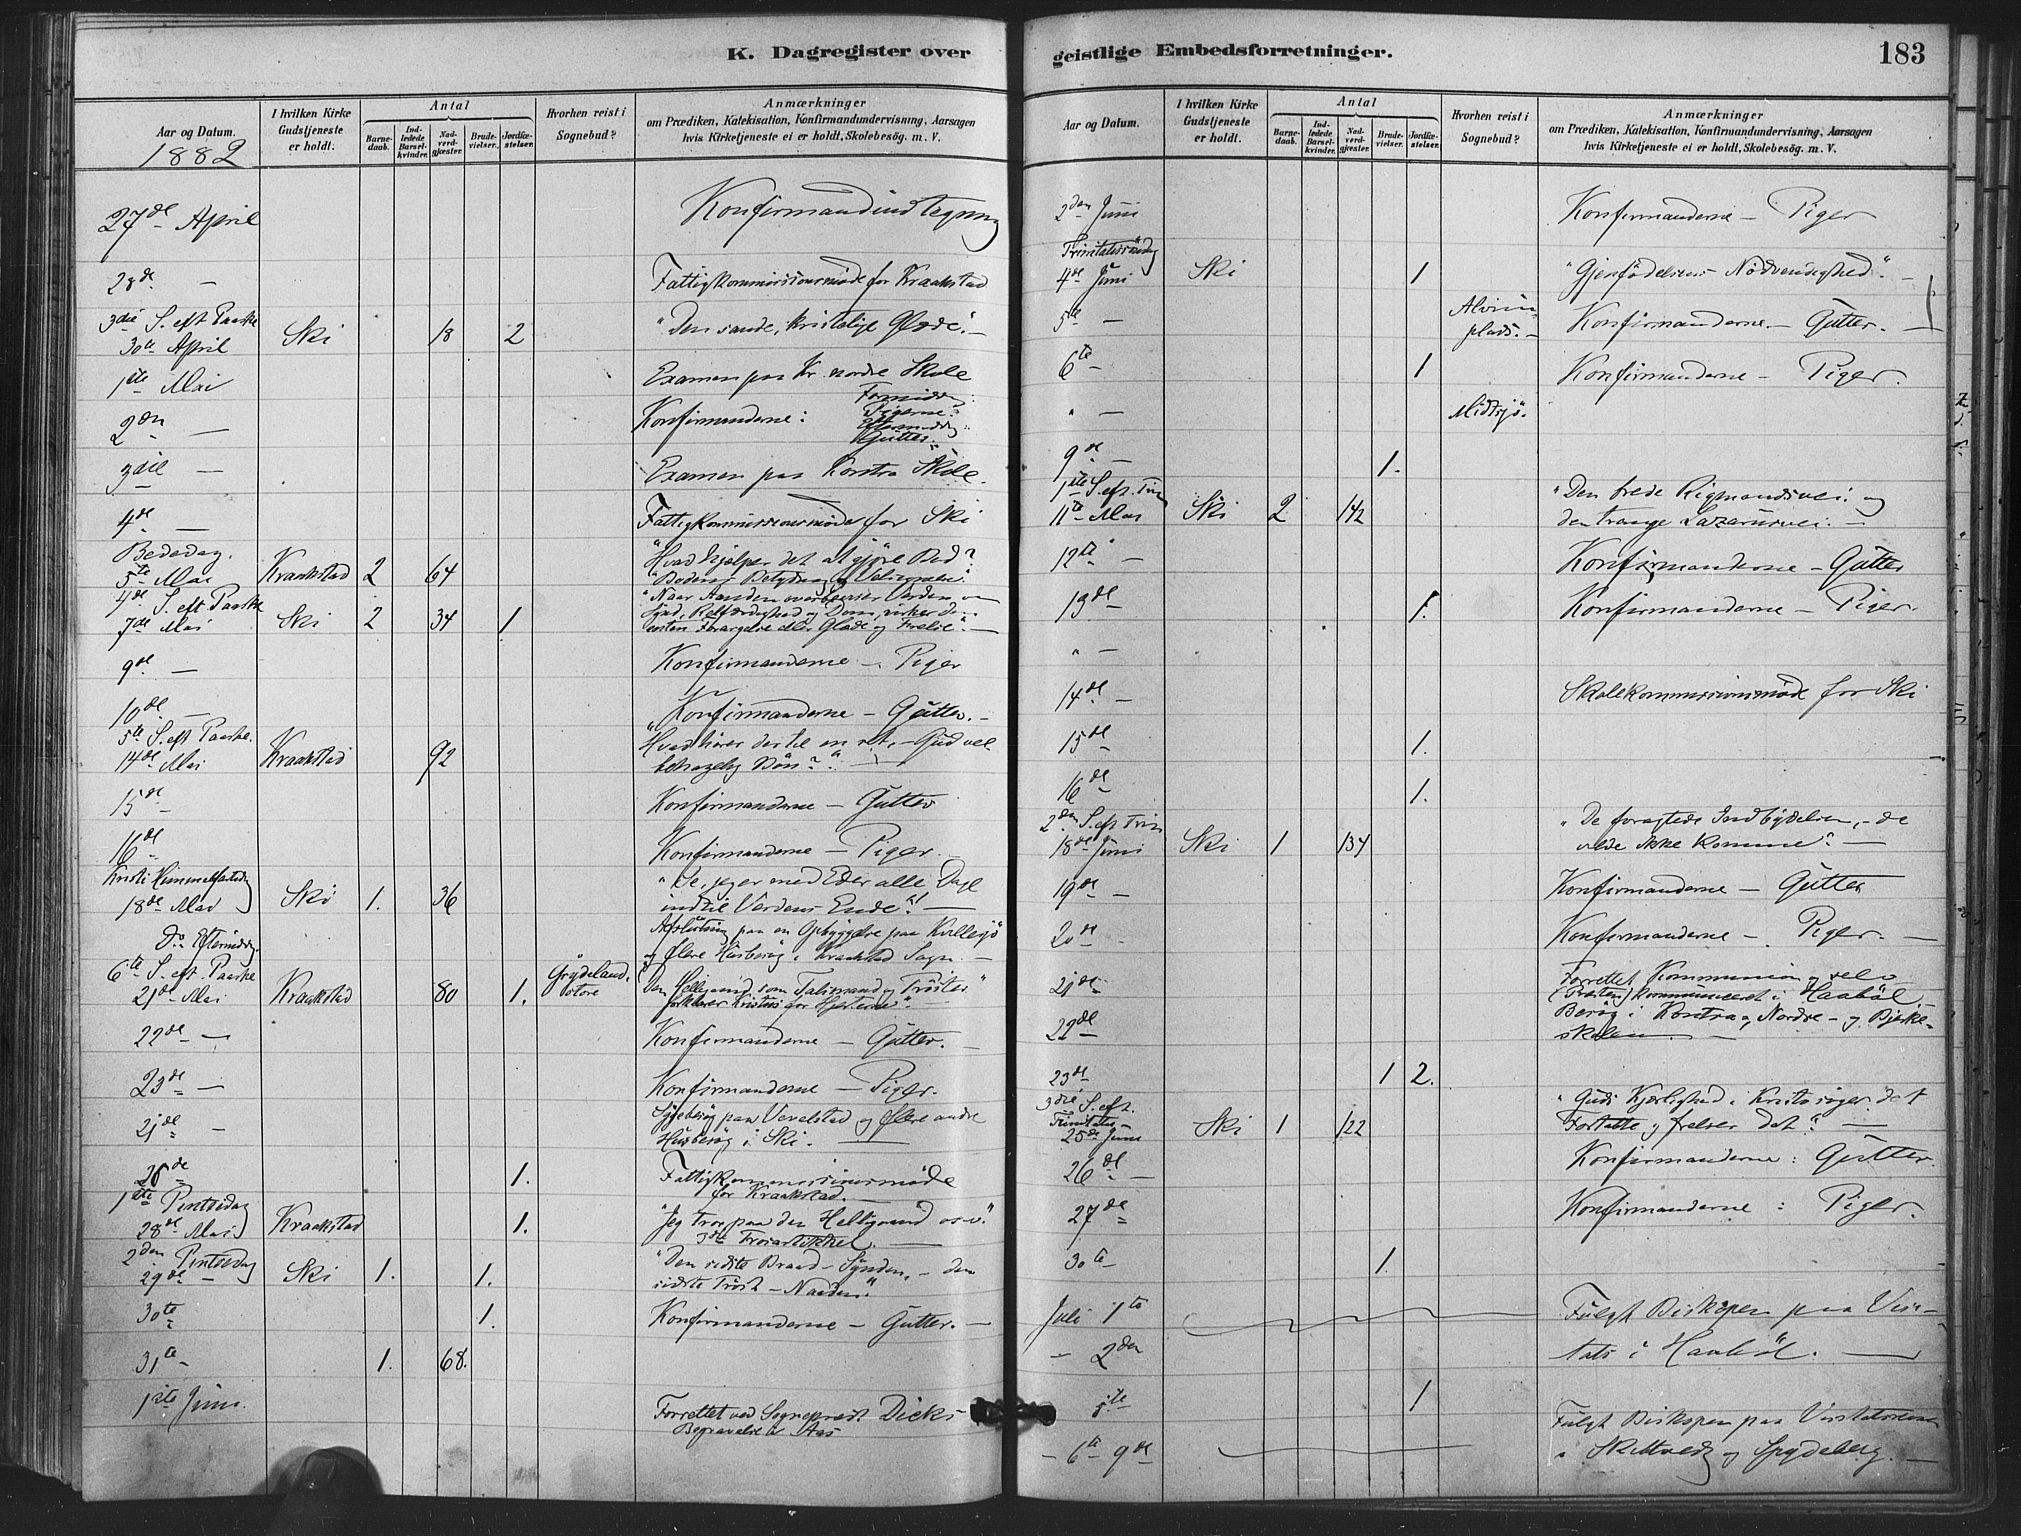 K. Dagregister over
Aar og Datum.
I hvilken Kirke Gudstjeneste er holdt.
Antal
Barnedaab.
Indledede Barselkvinder.
Nadverdgjæster.
Brudevielser.
Jordfæstelser.
Hvorhen reist i Sognebud?
Anmærkninger
om Prædiken, Katekisation, Konfirmandundervisning, Aarsagen
hvis Kirketjeneste ei er holdt, Skolebesög. m. V.
1882
27de April Konfirmandindtegning
28de — Fattigkommissionsmøde for Kraakstad
3die S. eft Paaske
30te April Ski 18 2 "Den sande, kristelige Glæde". —
1ste Mai Examen paa Kr. nordre Skole
2den — Konfirmanderne: Formiddag: Pigerne. Eftermiddag: Gutter.
3die — Examen paa Kontra Skole.
4de — Fattigkommissionsmøde for Ski
Bededag.
5te Mai Kraakstad 2 64 "Hvad hjælper det at gjöre Bod?
"Bodens Betydning og Velsignelse".
4de S. eft Paaske
7de Mai Ski 2 34 1 "Naar Aanden overbeviser Verden om
Synd, Retfærdighed og Dom, virker den
enten Forargelse eller Glæde og Frelse". —
9de — Konfirmanderne — Piger
10de — Konfirmanderne — Gutter. —
5te S. eft Paaske.
14de Mai Kraakstad 92 "Hvad hører der til en ret, — Gud vel-
behagelig Bön?" —
15de — Konfirmanderne — Gutter
16de Konfirmanderne — Piger.
Kristi Himmelfartsdag
18de Mai Ski 1. 36 "Se, jeg er med Eder alle Dage
indtil Verdens Ende"! —
Do Eftermiddag paa en Opbyggelse paa
og flere Husbesøg i Kraakstad Sogn. —
6te S. eft. Paaske
21de Mai Kraakstad 80 1. Grydeland store "Den Helligaand som Talsmand og Trøster
forklarer Kristus for Hjerterne". —
22de — Konfirmanderne — Gutter. —
23de — Konfirmanderne — Piger.
— Sygebesøg paa Vevelstad og flere andre
Husbesøg i Ski. —
26de 1. Fattigkommissionsmøde
for Kraakstad. —
1ste Pintsedag
28de Mai Kraakstad 1. "Jeg tror paa den Helligaand osv."
3die Trosartikkel. —
2den Pintsedag
29de — Ski 1. 1. "Den sidste Brand — Synden, — den
sidste Tröst — Naaden."
30te 1. Konfirmanderne — Gutter. —
31te — 1. 68.
1ste Juni. Forrettet ved Sognepræst Dicks
Begravelse i Aas
geistlige Embedsforretninger.
183
Aar og Datum.
I hvilken Kirke Gudstjeneste er holdt.
Antal
Barnedaab.
Indledede Barselkvinder.
Nadverdgjæster.
Brudevielser.
Jordfæstelser.
Hvorhen reist i Sognebud?
Anmærkninger
om Prædiken, Katekisation, Konfirmandundervisning, Aarsagen
hvis Kirketjeneste ei er holdt, Skolebesög. m. V.
2den Juni Konfirmanderne — Piger
Trinitatissöndag
4de Juni Ski 1 "Gjenfödelsens Nödvendighed". —
5te — plads. — Konfirmanderne. — Gutter. —
6te — 1 Konfirmanderne — Piger.
" — Midtsjö.
9de — 1.
1ste S. eft. Trin
11te Mai Ski 2 142 "Den brede Rigmandsvei og
den trange Lazarusvei. —
12te — Konfirmanderne — Gutter
13de 1. Konfirmanderne — Piger.
" —
14de — Skolekommissionsmøde for Ski
15de — 1.
16de 1.
2den S. eft Trin
18de Juni Ski 1 134 "De foragtede Indbydelsen, — de
vilde ikke komme". —
19de — Konfirmanderne — Gutter
20de — Konfirmanderne — Piger. —
21de — Forrettet Kommunion og selv
(Præsten) kommuniceret i Haabøl. —
22de Besøg i Kontra, Nordre — og Bjerke-
skolen. —
23de 1 2.
3die S. eft.
Trinitatis —
25de Juni Ski 1 122 "Guds Kjærlighed i Kristo søger det
Fortabte og frelser det". —
26de — Konfirmanderne: Gutter.
27de Konfirmanderne: Piger.
30te — 1.
Juli 1ste Fulgt Biskopen paa Visi-
— 2den tats i Haabøl. —
5te 1
— 6te 9de Fulgt Biskopen paa Visitatsen
i Skiptvedt og Spydeberg. —